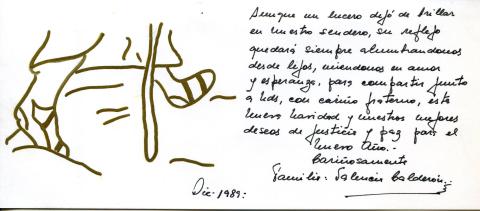 Aunque un lucero dejó de brillar
en nuestro sendero, su reflejo
quedará siempre alumbrandonos
desde lejos, uniendonos en amor
y esperanza, para compartir junto
a Uds, con cariño fraterno, esta
nueva navidad y nuestros mejores
deseos de Justicia y paz para el
nuevo Año.-
Cariñosamente
Familia: Valencia Calderón.-
Dic. 1989.